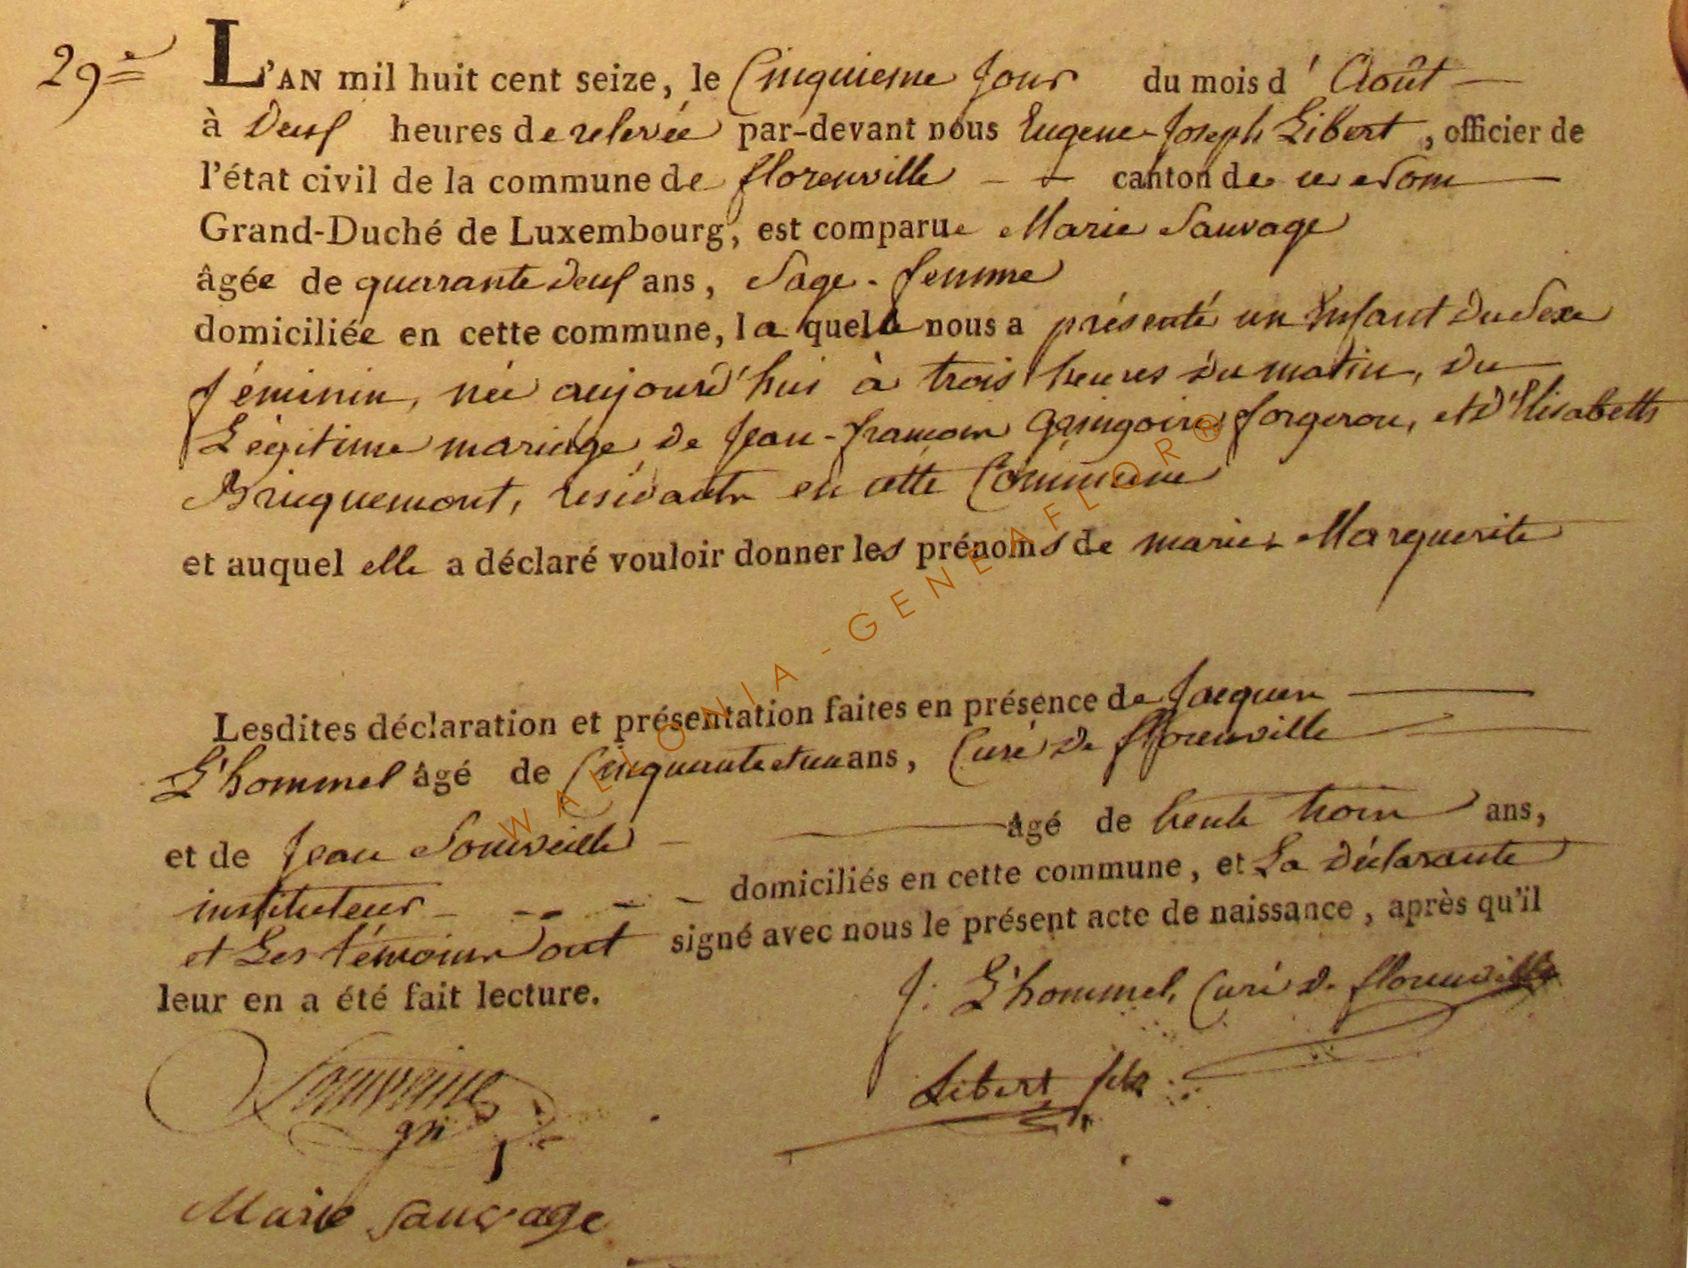 29e
L'AN mil huit cent seize, le Cinquieme Jour du mois d'Août
à Deux heures de relevée par-devant nous Eugene-Joseph Libert, officier de
l'état civil de la commune de florenville canton de ce Nom
Grand-Duché de Luxembourg, est comparue Marie Sauvage
âgée de quarante Deux ans, Sage-femme
domiciliée en cette commune, la quele nous a présenté un Enfant Du Sexe
féminin, née aujourd'hui à trois heures du matin, du
Légitime mariage de Jean-francois Gringoire forgeron, et D'Elisabeth
Bruquemont, résidants en cette Commune
et auquel elle a déclaré vouloir donner les prénoms de marie-Marguerite
Lesdites déclaration et présentation faites en présence de Jacques
L'hommel âgé de Cinquante et un ans, Curé De florenville
et de Jean Souveille âgé de trente trois ans,
instituteur domiciliés en cette commune, et La Déclarante
et Les témoins ont signé avec nous le présent acte de naissance, après qu'il
leur en a été fait lecture.
J: L'hommel, Curé de florenville
Libert fils
Marie Sauvage
WALLONIA-GENEAFLOR®